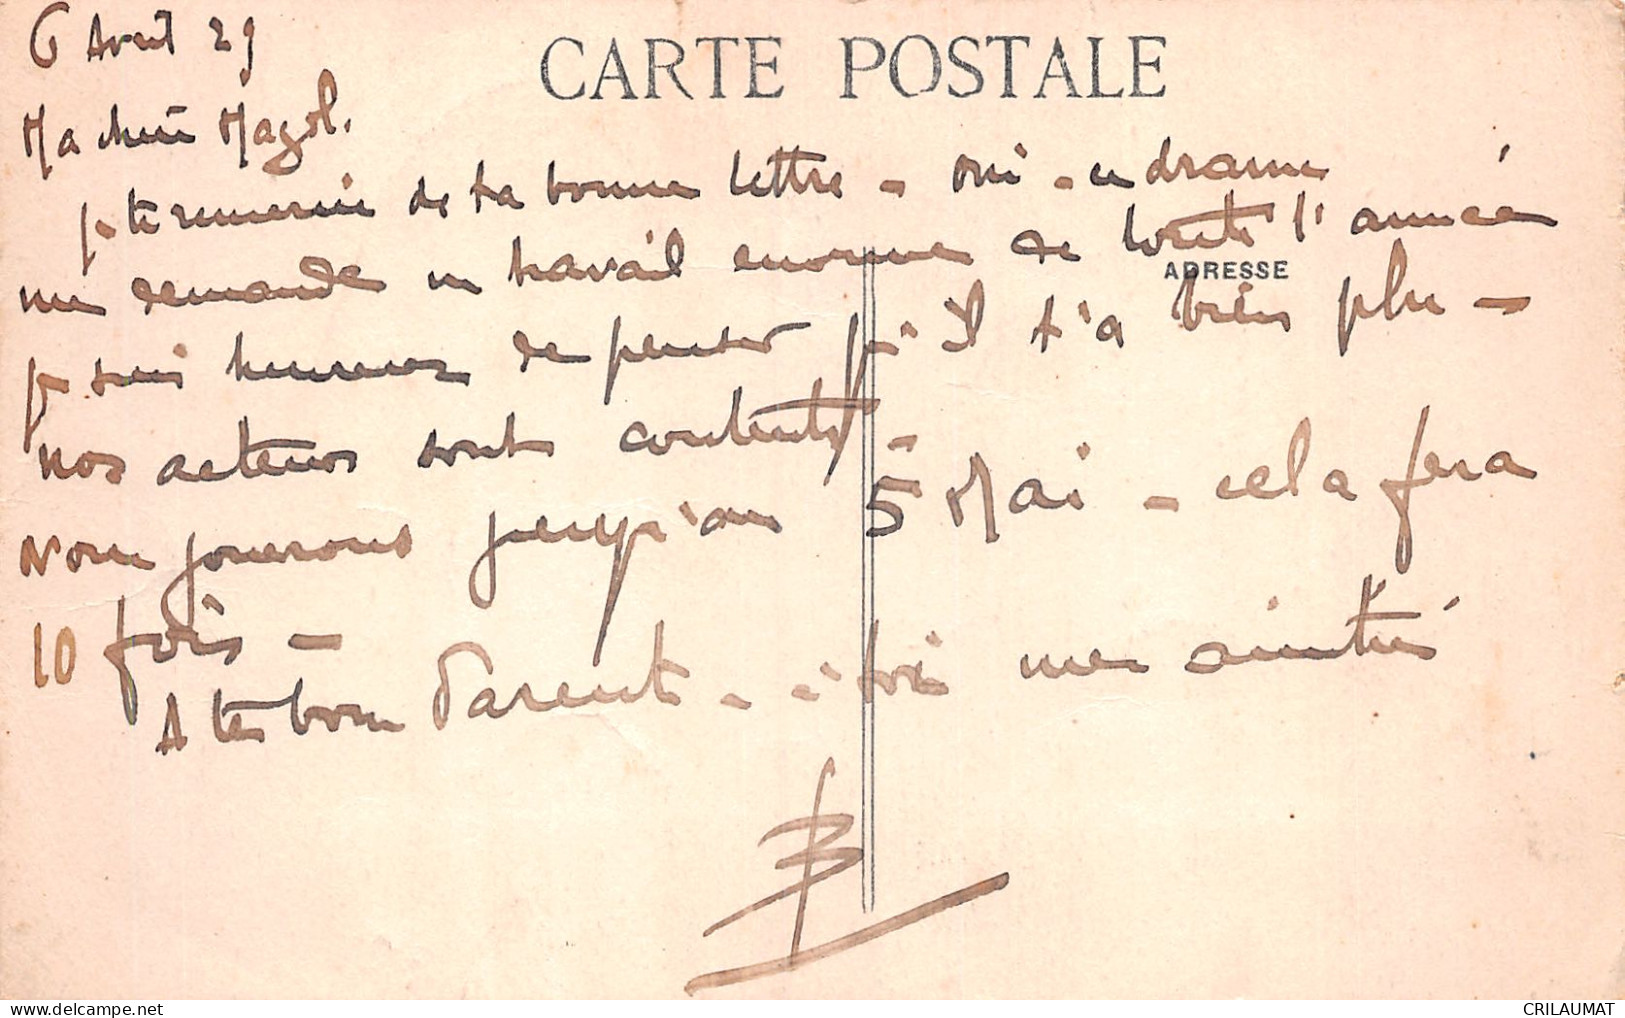 6 Avril 29
CARTE POSTALE
Ma chère Magol.
je te remercie de ta bonne lettre - oui - ce drame
me demande un travail enorme de toute l'année
ADRESSE
je suis heureux de penser qu'il t'a bien plu -
nos acteurs sont contents -
Nous jouerons jusqu'au 5 Mai - cela fera
10 fois -
A tes bons Parents - à toi mes amitiés
B
www.delcampe.net
CRILAUMAT